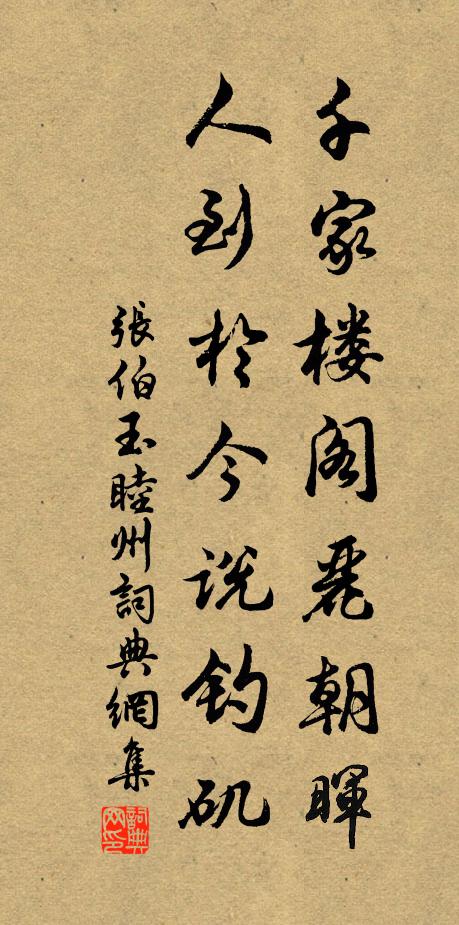 千家楼阁麗朝暉
人到於今说钓矶
張伯玉睦州詞典網集
詞典网印